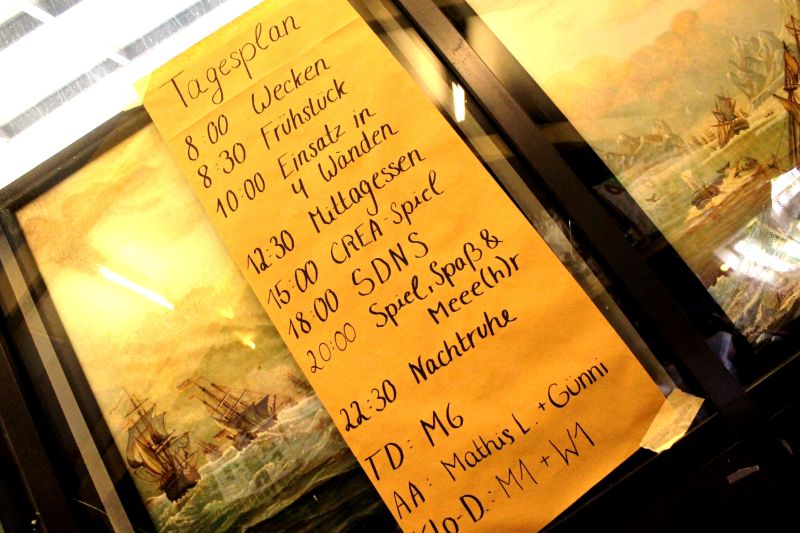 Tagesplan
8:00 Wecken
8:30 Frühstück
10:00 Einsatz in
4 Wänden
12:30 Mittagessen
15:00 CREA-Spiel
18:00 SDNS
20:00 Spiel, Spaß &
Meee(h)r
22:30 Nachtruhe
TD: M6
AA: Mathis L. + Günni
Klo-D.: M1 + W1